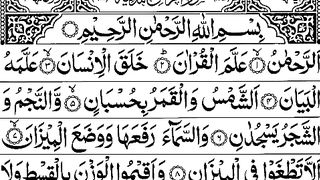 بِسْمِ اللّٰهِ الرَّحْمٰنِ الرَّحِيْمِ
اَلرَّحْمٰنُ ۙ﴿۱﴾ عَلَّمَ الْقُرْاٰنَ ؕ﴿۲﴾ خَلَقَ الْاِنْسَانَ ۙ﴿۳﴾ عَلَّمَهُ
الْبَيَانَ ﴿۴﴾ اَلشَّمْسُ وَ الْقَمَرُ بِحُسْبَانٍ ۪﴿۵﴾ وَّ النَّجْمُ وَ
الشَّجَرُ يَسْجُدٰنِ ﴿۶﴾ وَ السَّمَآءَ رَفَعَهَا وَ وَضَعَ الْمِيْزَانَ ۙ﴿۷﴾
اَلَّا تَطْغَوْا فِي الْمِيْزَانِ ﴿۸﴾ وَ اَقِيْمُوا الْوَزْنَ بِالْقِسْطِ وَ لَا